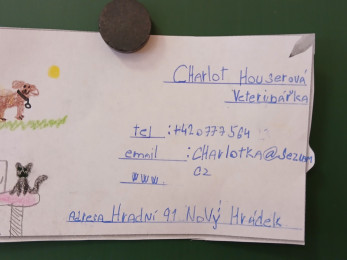 Charlot Houserová
Veterinářka
tel :+420777564
email :CHARLOTKA@Seznam
cz
www
Adresa Hradní 91 Nový Hrádek